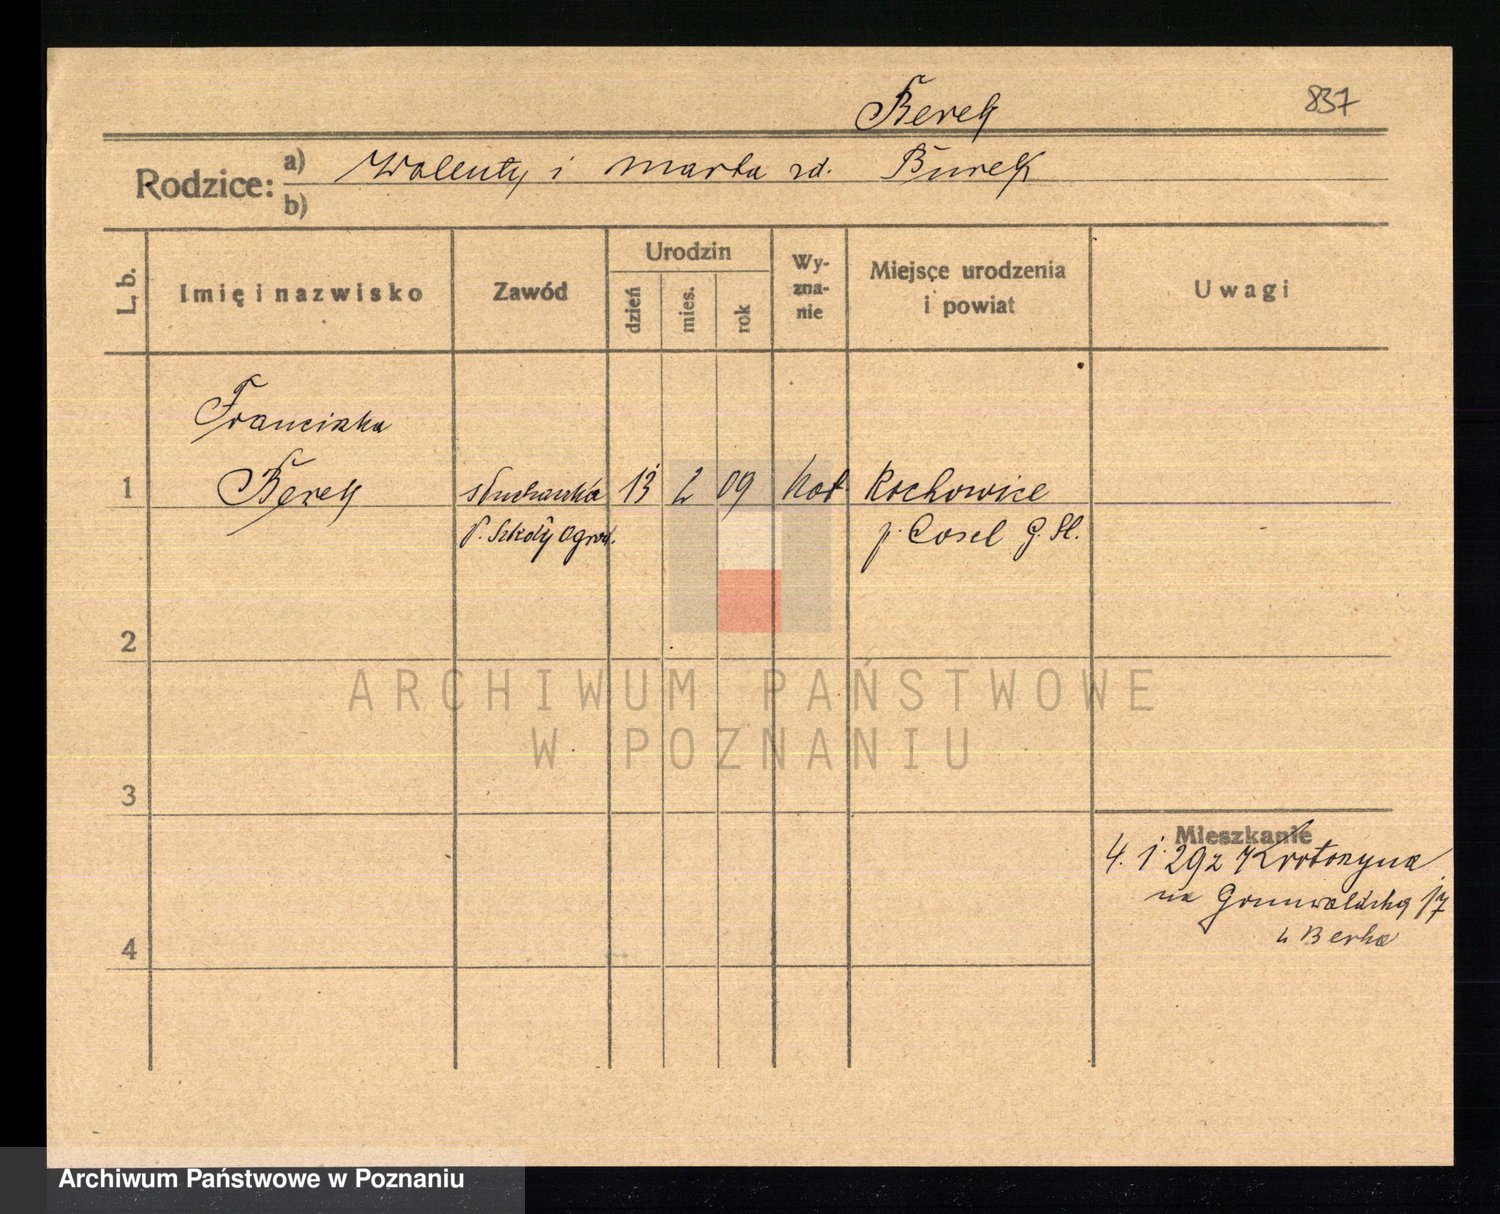 Berek
837
Rodzice: a) Walenty i Marta zd. Burek
b)
L. b.
Imię i nazwisko
Zawód
Urodzin
dzień
mies.
rok
Wy-
zna-
nie
Miejsce urodzenia
i powiat
Uwagi
Franciszka
1 Berek słuchaczka 13 2 09 kat Rochowice
P. Szkoły Ogrod. p. Cosel G. Sl.
2
ARCHIWUM PAŃSTWOWE
W POZNANIU
3
Mieszkanie
4. 1 29 z Krotoszyna
na Grunwaldzką 17
u Berka
4
Archiwum Państwowe w Poznaniu